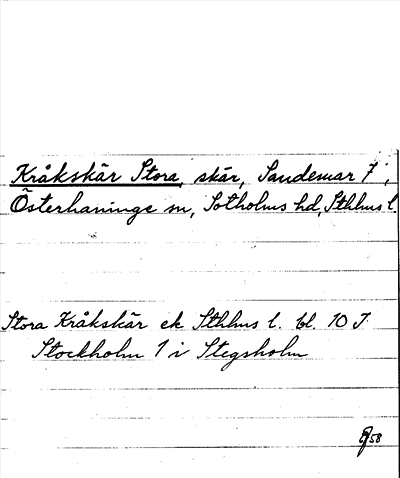 Kråkskär Stora, skär, Sandemar 7,
Österhaninge sn, Sotholms hd, Sthlms l.
Stora Kråkskär ek Sthlms l. bl. 10 J.
Stockholm 1 i Stegsholm
58